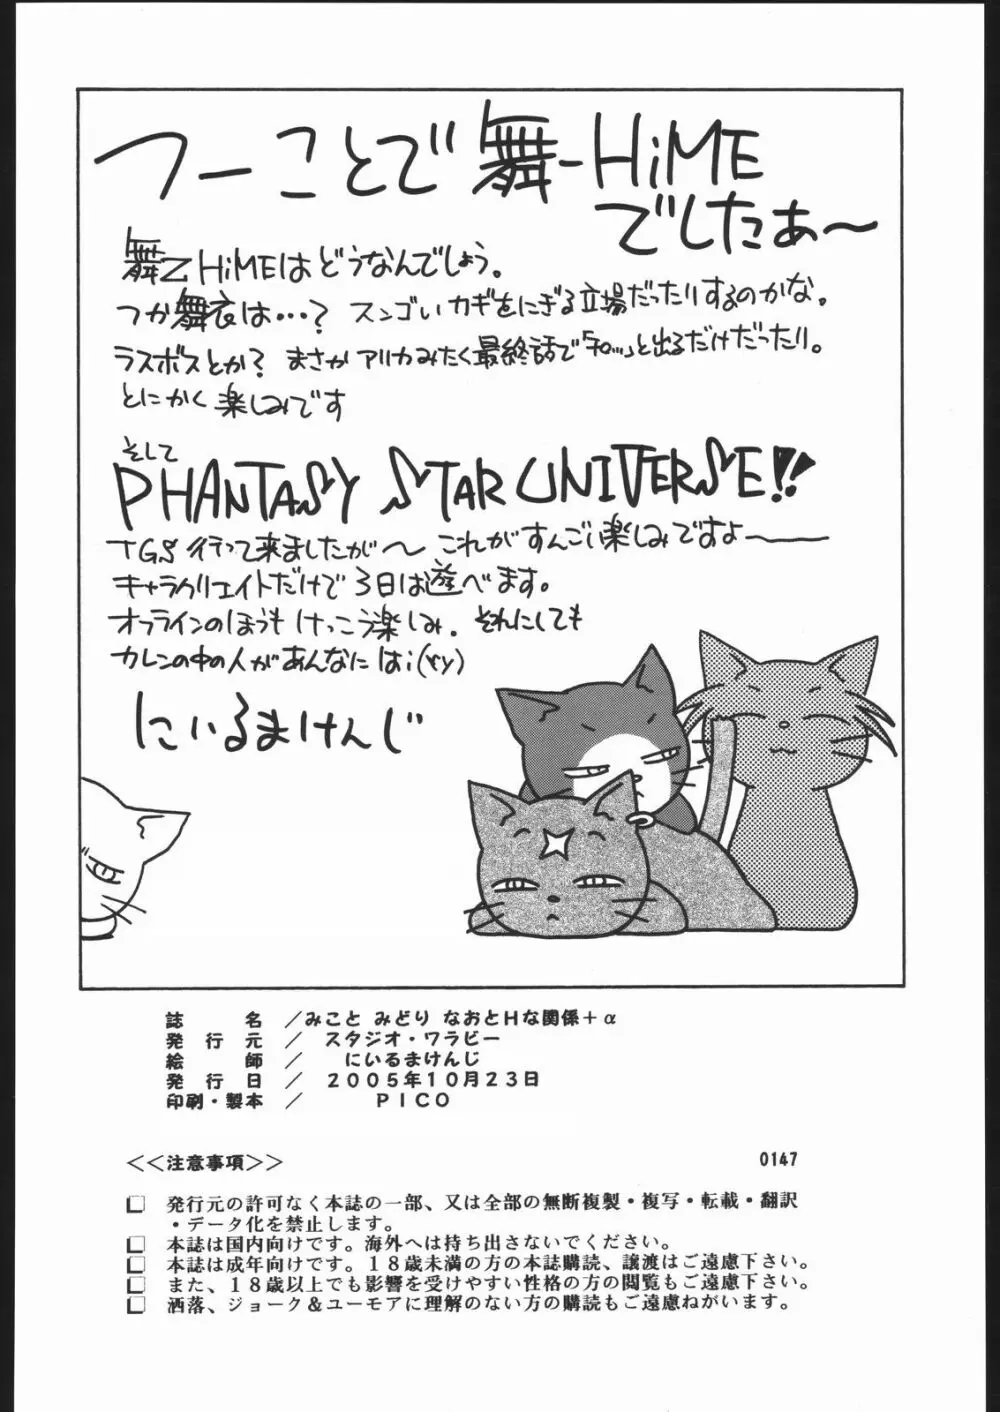 つーことで 舞-HiME
でしたぁ〜
舞乙HiMEはどうなんでしょう。
つか舞衣は…？ スンゴいカギをにぎる立場だったりするのかな。
ラスボスとか？ まさかアリカみたく最終話で「和…」と出るだけだったり。
とにかく楽しみです
そして
PHANTASY STAR UNIVERSE!!
TGS行って来ましたが〜 これがすんごい楽しみですよ——
キャラクリエイトだけで3日は遊べます。
オフラインのほうもけっこう楽しみ. それにしても
カレンの中の人があんなにはi(ry)
にいるまけんじ
誌　　名 ／みこと みどり なおとHな関係＋α
発 行 元 ／ スタジオ・ワラビー
絵　　師 ／ にいるまけんじ
発 行 日 ／ ２００５年１０月２３日
印刷・製本 ／ ＰＩＣＯ
<<注意事項>>
0147
□ 発行元の許可なく本誌の一部、又は全部の無断複製・複写・転載・翻訳
・データ化を禁止します。
□ 本誌は国内向けです。海外へは持ち出さないでください。
□ 本誌は成年向けです。１８歳未満の方の本誌購読、譲渡はご遠慮下さい。
□ また、１８歳以上でも影響を受けやすい性格の方の閲覧もご遠慮下さい。
□ 洒落、ジョーク＆ユーモアに理解のない方の購読もご遠慮ねがいます。